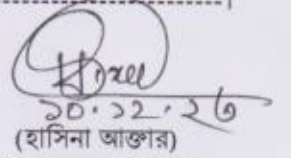 ১০.১২.২৩
(হাসিনা আক্তার)